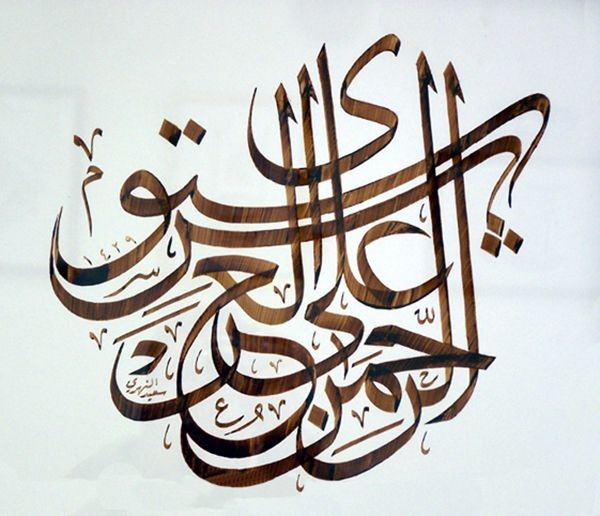 الرحمن على العرش استوى
١٤٢٩
سعيد النهري